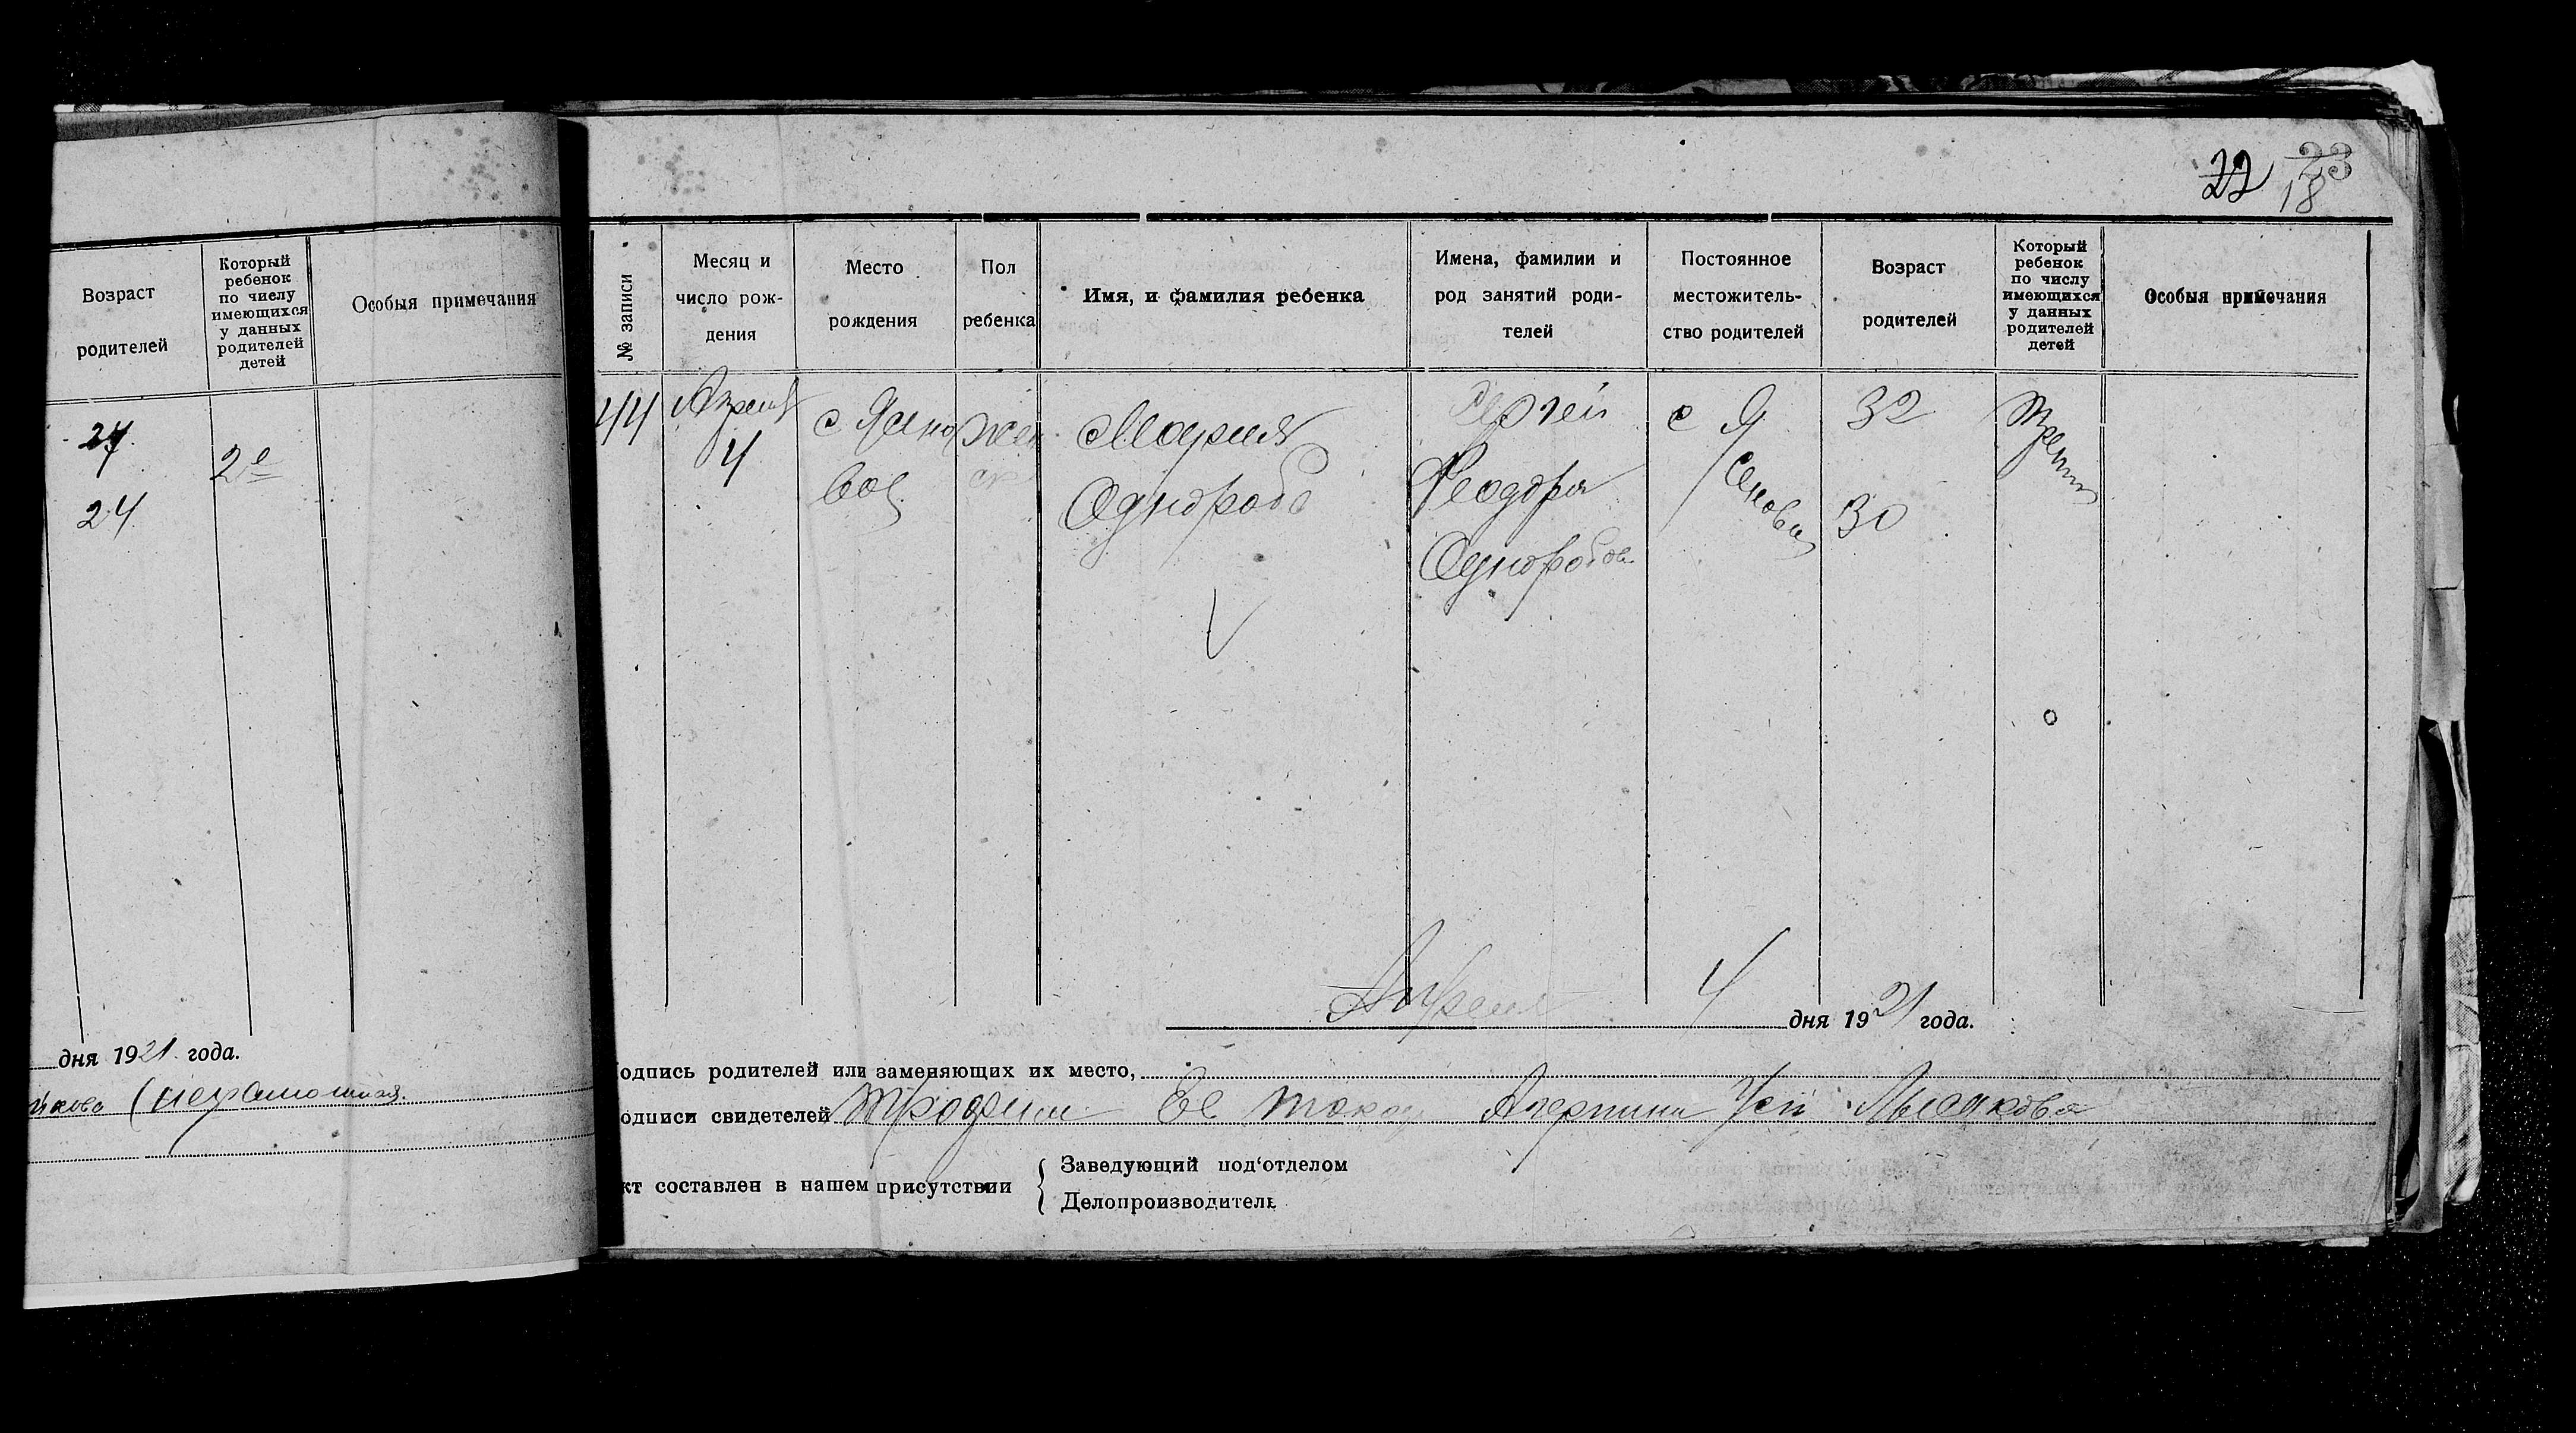 22 23
18
Возраст
родителей
Который
ребенок
по числу
имеющихся
у данных
родителей
детей
Особыя примечания
27
2е
24
дня 1921 года.
(неграмотная)
№ записи
Месяц и
число рож-
дения
Место
рождения
Пол
ребенка
Имя, и фамилия ребенка
Имена, фамилии и
род занятий роди-
телей
Постоянное
местожитель-
ство родителей
Возраст
родителей
Который
ребенок
по числу
имеющихся
у данных
родителей
детей
Особыя примечания
44
Апреля
4
с Ясно
вое
жен
ск
Мария
Однороб
Сергей
Феодора
Одноробов
с Я
сенова
32
30
Апреля 4 дня 1921 года.
одпись родителей или заменяющих их место,
одписи свидетелей
кт составлен в нашем присутствии
Заведующий под'отделом
Делопроизводитель